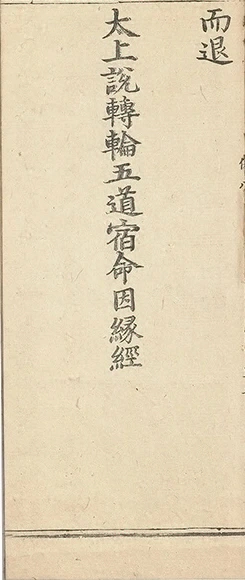 而退
太上說轉輪五道宿命因緣經